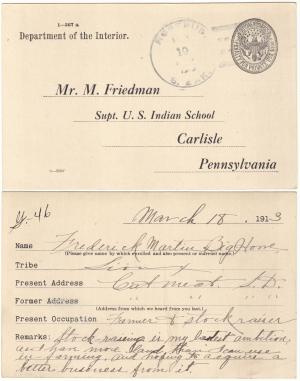 1—267 a
Department of the Interior.
Mr. M. Friedman
Supt. U. S. Indian School
Carlisle
Pennsylvania
March 18, 1913
Name Frederick Martin Big Horse
(Please give name by which enrolled and also present or married name.)
Tribe Sioux
Present Address Cut meat, S.D.
Former Address
(Address from which we heard from you last.)
Present Occupation Farmer & Stockraiser
Remarks: Stock raising is my ambition,
more land than I can use
in farming, and hoping to acquire a
better business from it.